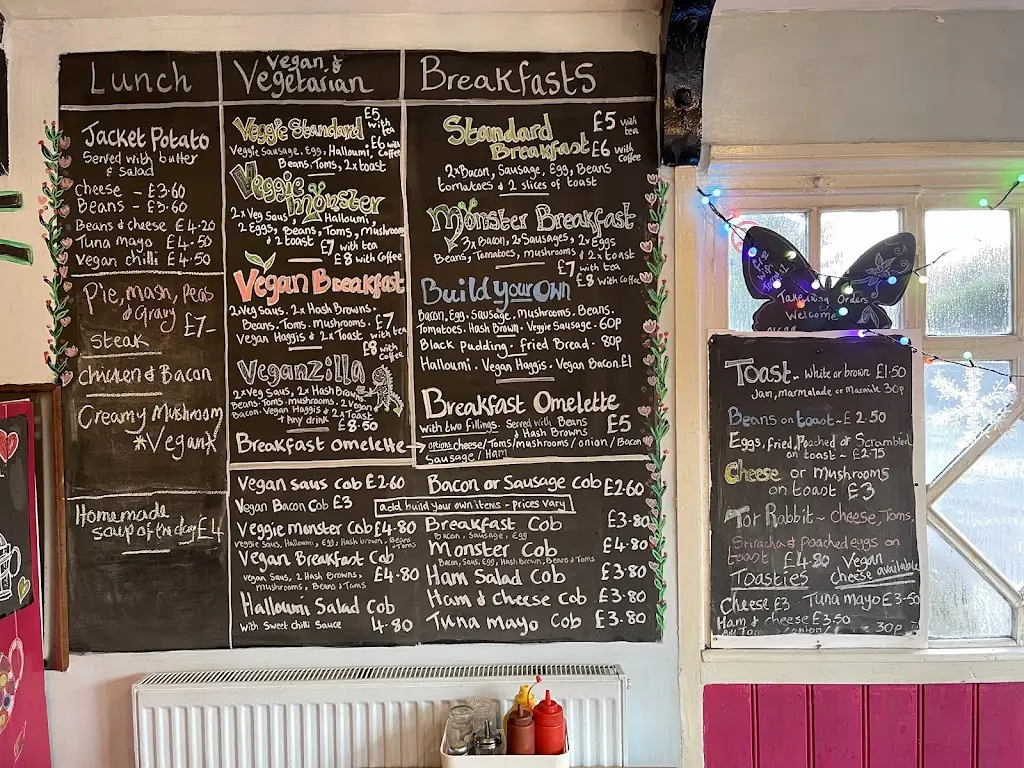 Lunch
Jacket Potato
Served with butter
& Salad
Cheese - £3.60
Beans - £3.60
Beans & cheese £4.20
Tuna mayo £4.50
Vegan chilli £4.50
Pie, mash, Peas
& Gravy £7-
Steak
Chicken & Bacon
Creamy Mushroom
*Vegan*
Homemade
soup of the day £4
Vegan &
Vegetarian
Veggie Standard £5 with tea
£6 with Coffee
Veggie Sausage, Egg, Halloumi,
Beans, Toms, 2x toast
Veggie Monster
2x Veg Saus, Halloumi,
2 Eggs, Beans, Toms, mushroom
& 2 toast £7 with tea
£8 with Coffee
Vegan Breakfast
2x Veg Saus, 2x Hash Browns.
Beans. Toms. mushrooms. £7 with tea
Vegan Haggis & 2x Toast
£8 with coffee
Veganzilla
2x Veg Saus, 2x Hash Browns.
Beans. Toms. mushrooms. 2 Vegan
Bacon. Vegan Haggis & 2x Toast
+ Any drink £8.50
Breakfast Omelette
Breakfasts
Standard Breakfast £5 with tea
£6 with Coffee
2x Bacon, Sausage, Egg, Beans
tomatoes & 2 slices of toast
Monster Breakfast
3x Bacon, 2x Sausages, 2x Eggs
Beans, Tomatoes, mushrooms & 2x toast
£7 with tea
£8 with Coffee
Build your Own
Bacon. Egg. Sausage. Mushrooms. Beans.
Tomatoes. Hash Brown. Veggie Sausage. 60p
Black Pudding. fried Bread. 80p
Halloumi. Vegan Haggis. Vegan Bacon. £1
Breakfast Omelette
with two fillings. Served with Beans
& Hash Browns £5
options: cheese/Toms/mushrooms/onion/Bacon
Sausage/Ham
Vegan saus cob £2.60
Vegan Bacon Cob £3
Veggie monster Cob £4.80
Veggie Saus, Halloumi, Egg, Hash brown, Beans & Toms
Vegan Breakfast Cob
Vegan Saus, 2 Hash Browns, £4.80
mushrooms, Beans & Toms
Halloumi Salad Cob
with Sweet chilli Sauce 4.80
Bacon or Sausage cob £2.60
add build your own items - prices vary
Breakfast Cob £3.80
Bacon, Sausage, Egg
Monster Cob £4.80
Bacon, Saus, Egg, Hash Brown, Beans & Toms
Ham Salad Cob £3.80
Ham & Cheese Cob £3.80
Tuna Mayo Cob £3.80
Takeaway Orders
Welcome
Toast - White or brown £1.50
Jam, marmalade or Marmite 30p
Beans on toast - £2.50
Eggs, Fried, Poached or Scrambled
on toast - £2.75
Cheese or mushrooms
on toast £3
Tor Rabbit ~ cheese, Toms,
Sriracha & Poached eggs on
toast £4.80 Vegan
Toasties cheese available
Cheese £3 Tuna mayo £3.50
Ham & cheese £3.50
30p